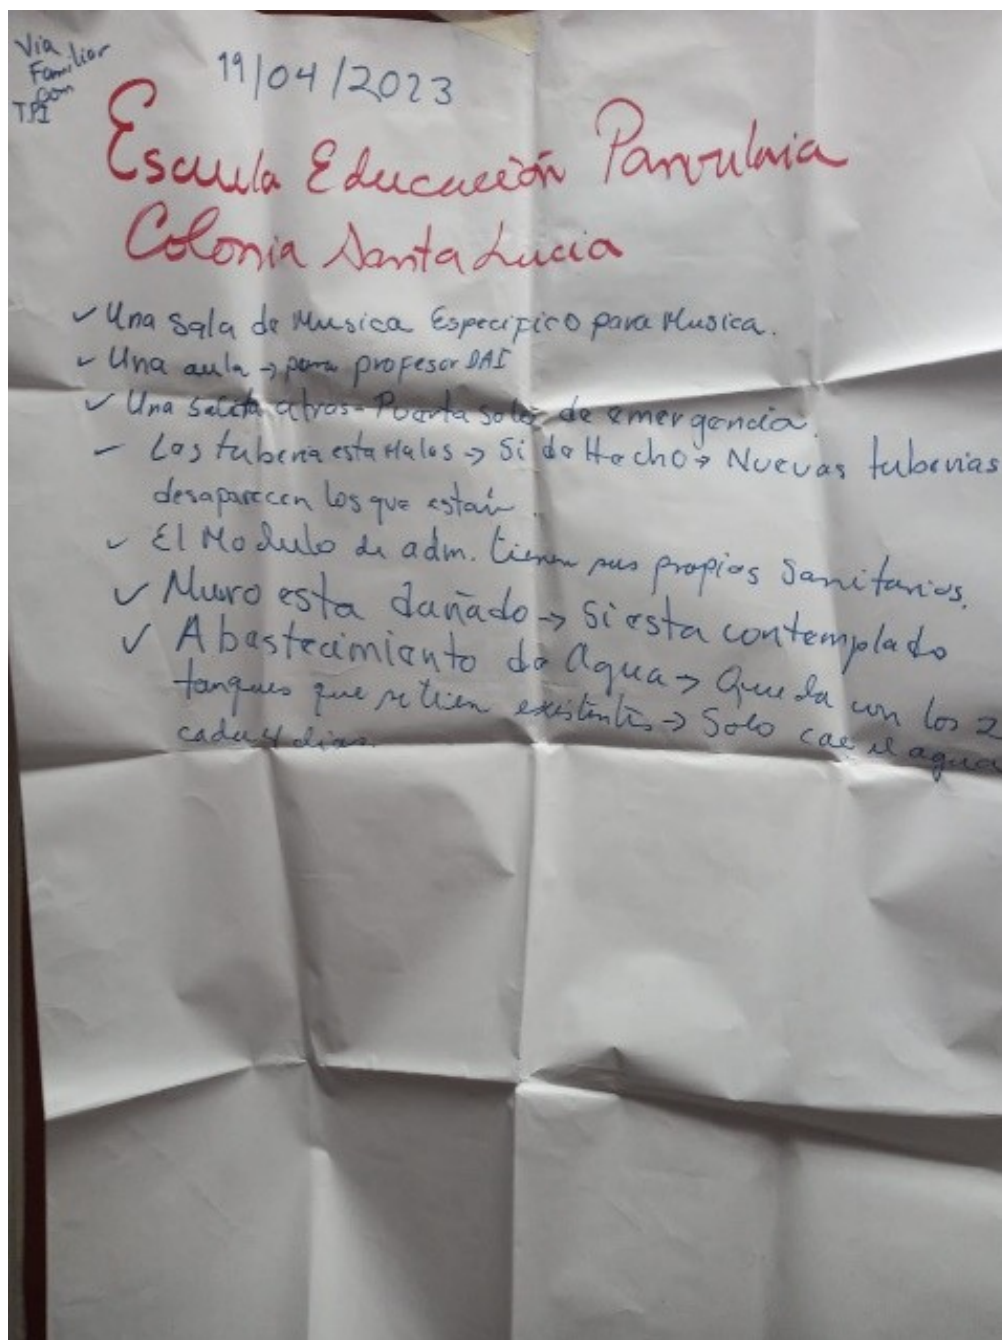 Via
Familiar
con
TPI
19/04/2023
Escuela Educación Parvularia
Colonia Santa Lucia
✓ Una sala de Musica Especifico para Musica.
✓ Una aula → para profesor DAI
✓ Una salita atras - Puerta solo de emergencia.
- Las tuberia esta Malas → Si de Hecho → Nuevas tuberias
desaparecen los que están.
✓ El Modulo de adm. tienen sus propios Sanitarios.
✓ Muro esta dañado → Si esta contemplado
✓ Abastecimiento de Agua → Queda con los 2
tanques que se tien existentes → Solo cae el agua
cada 4 dias.